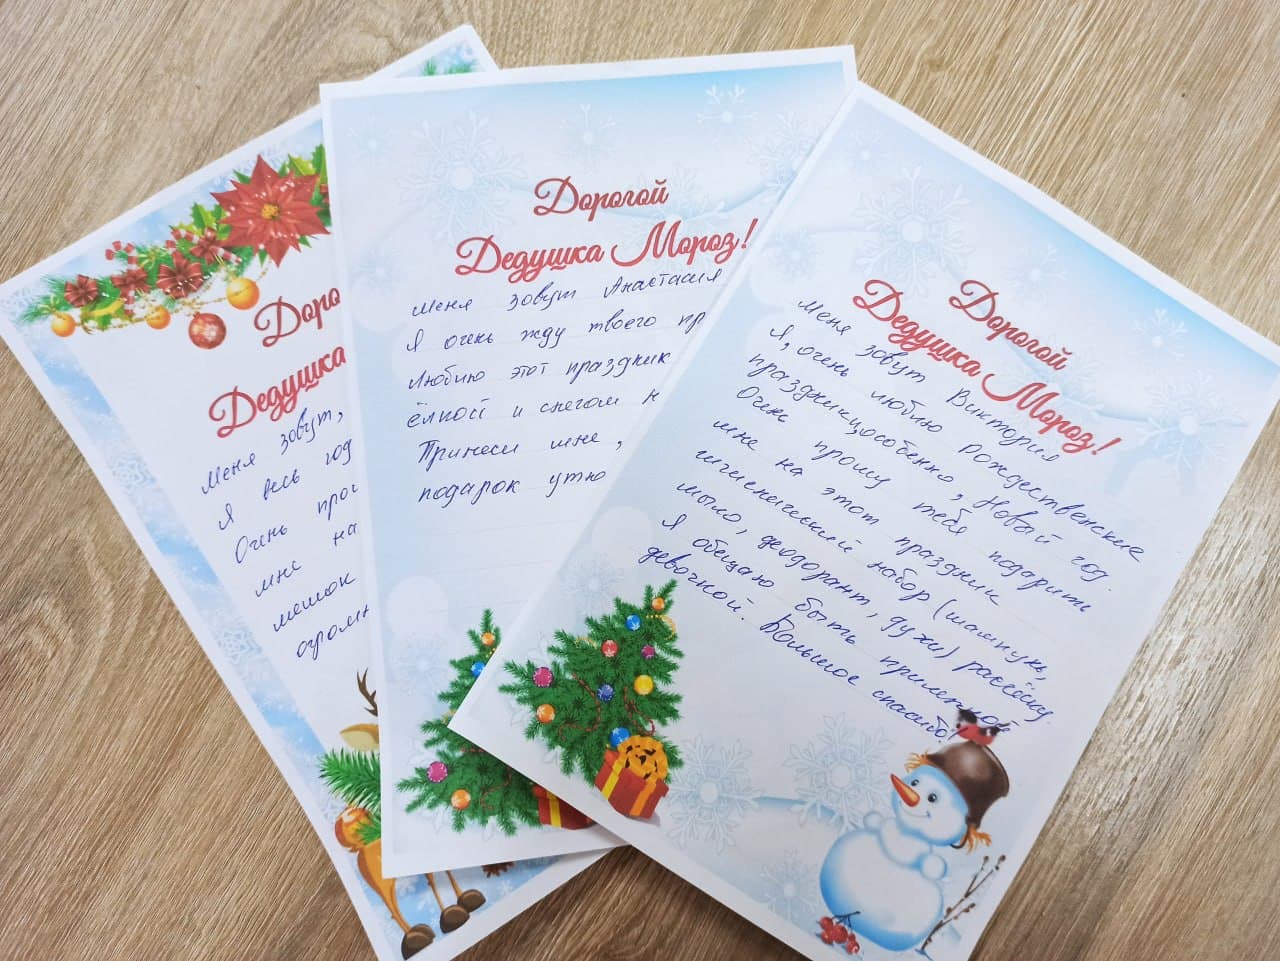 Доро
Дедушка
Меня зовут,
Я весь год
Очень прош
мне на
мешок
огромн
Дорогой
Дедушка Мороз!
Меня зовут Анастасия
Я очень жду твоего пр
Люблю этот праздник
ёлкой и снегом н
Принеси мне,
подарок утю
Дорогой
Дедушка Мороз!
Меня зовут Виктория
Я, очень люблю Рождественские
праздники, особенно, Новый год
Очень прошу тебя подарить
мне на этот праздник
гигиенический набор (шампунь,
мыло, дезодорант, духи) расчёску.
Я обещаю быть прилежной
девочкой. Большое спасибо!